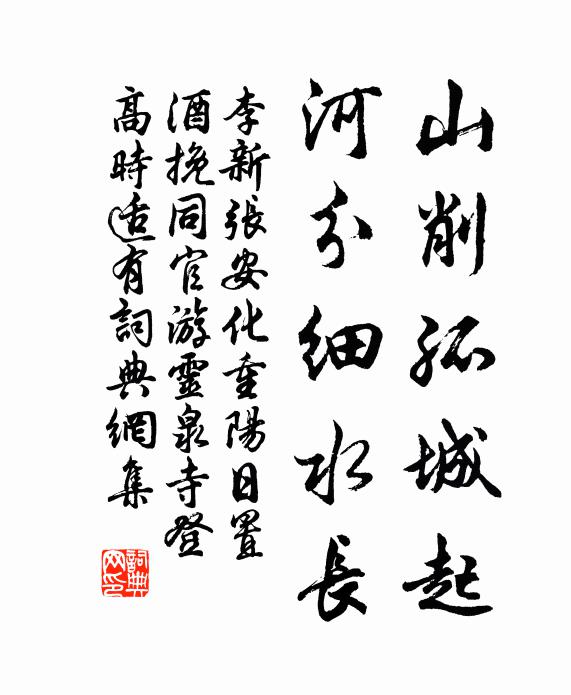 山削孤城起
河分細水長
李新張安化重陽日置
酒挽同官游靈泉寺登
高時适有詞典網集
詞典網印